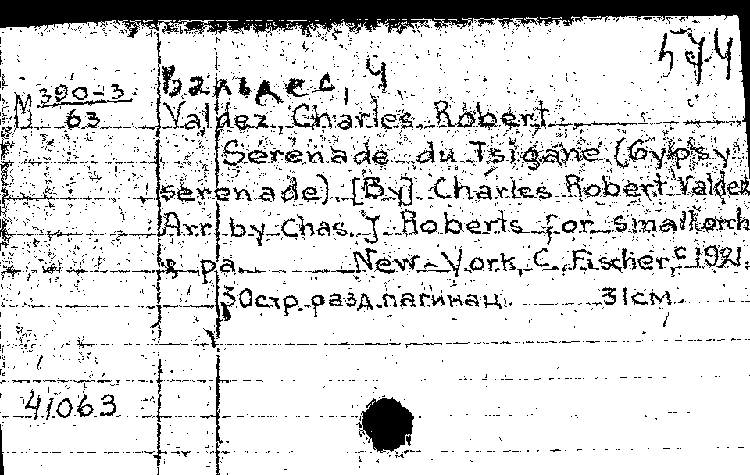 574
Вальдес, Ч
М 390-3
63
Valdez, Charles Robert
Serenade du Tsigane. (Gypsy
serenade). [By] Charles Robert Valdez
Arr. by Chas. J. Roberts for small orch
& pa. New-York, C. Fischer, c 1921.
30 стр. разд. пагинац. 31 см.
41063